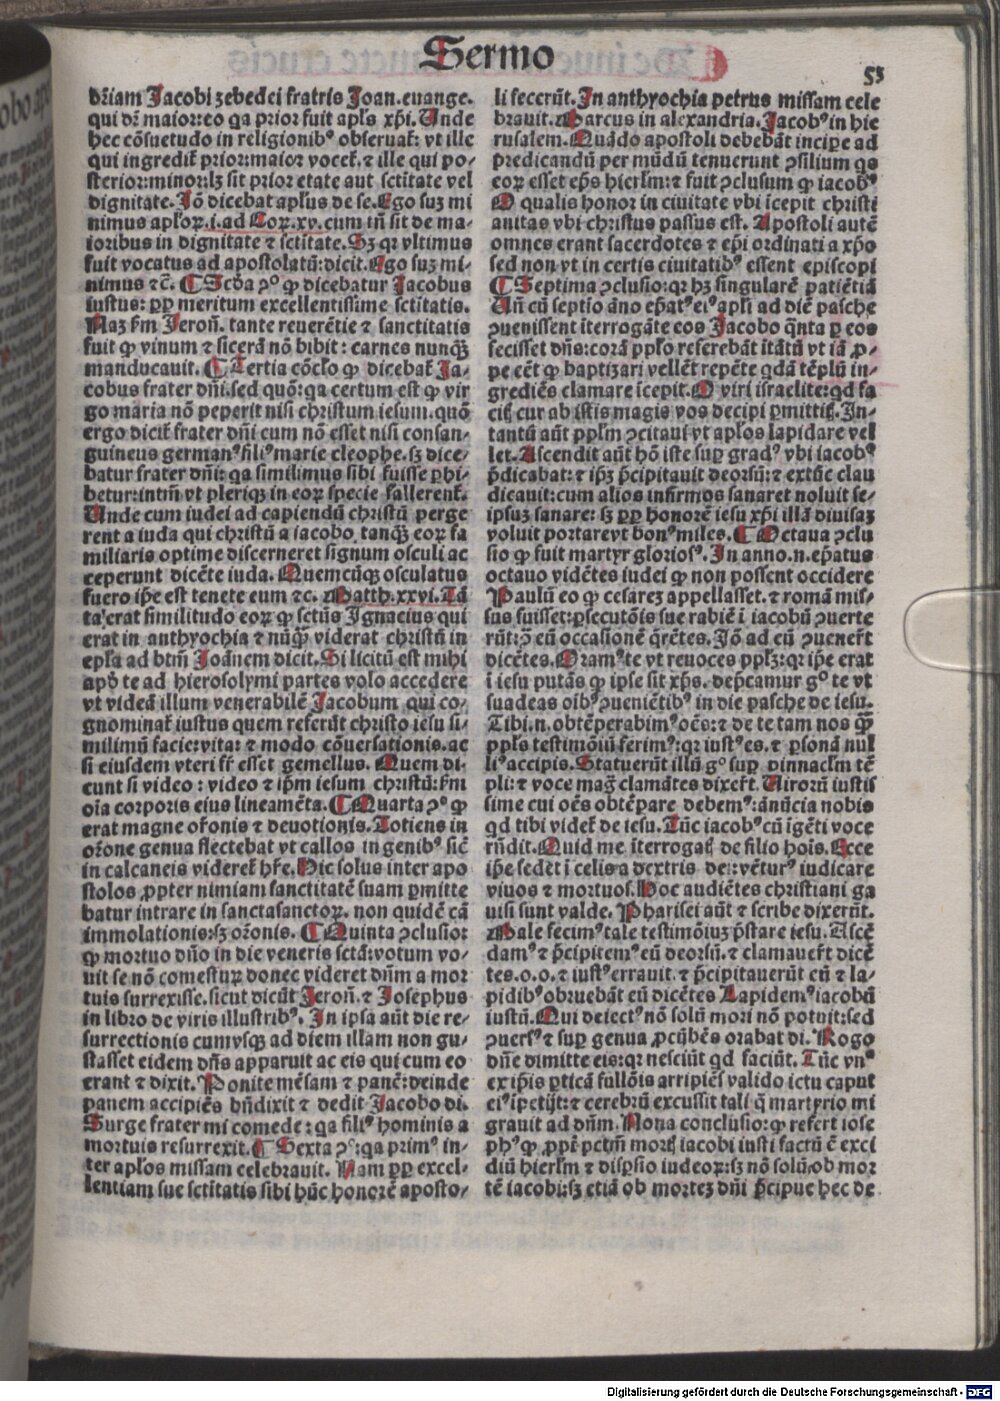 Sermo
53
dr̄iam Jacobi zebedei fratris Joan.euange.
qui dr̄ maior:eo qa prior fuit apl̄s xp̄i. Unde
hec cōsuetudo in religionibꝰ obseruat̄: vt ille
qui ingredit̄ prior:maior vocet̄.⁊ ille qui po⸗
sterior:minor:lꝫ sit prior etate aut sctitate vel
dignitate. Jō dicebat apl̄us de se.Ego suꝫ mi
nimus apl̄oꝝ.i.ad Coꝝ.xv.cum tn̄ sit de ma⸗
ioribus in dignitate ⁊ sctitate.Sꝫ qr vltimus
fuit vocatus ad apostolatū:dicit.Ego suꝫ mi⸗
nimus ⁊c̄. ¶ Scd̄a ꝯº ꝙ dicebatur Jacobus
iustus: ꝓꝑ meritum excellentissime sctitatis.
Naꝫ ẜm Jeron̄. tante reuerētie ⁊ sanctitatis
fuit ꝙ vinum ⁊ sicerā nō bibit: carnes nunqꝫ
manducauit. ¶ Tertia cōclō ꝙ dicebat̄ Ja⸗
cobus frater dn̄i.sed quō:qa certum est ꝙ vir
go maria nō peperit nisi christum iesum.quō
ergo dicit̄ frater dn̄i cum nō esset nisi consan⸗
guineus germanꝰ filiꝰ marie cleophe.sꝫ dice⸗
batur frater dn̄i: qa similimus sibi fuisse ꝑhi⸗
betur:intm̄ vt plerique in eoꝝ specie fallerent̄.
Unde cum iudei ad capiendū christū perge
rent a iuda qui christū a iacobo tanqꝫ eoꝝ fa
miliaris optime discerneret signum osculi ac
ceperunt dicēte iuda. Quemcūqꝫ osculatus
fuero ip̄e est tenete eum ⁊c. Matth.xxvi.Tā
ta erat similitudo eoꝝ ꝙ sctūs Ignacius qui
erat in anthyochia ⁊ nūqꝫ viderat christū in
epl̄a ad btm̄ Joānem dicit.Si licitū est mihi
apd̄ te ad hierosolymi partes volo accedere
vt videā illum venerabilē Jacobum qui co⸗
gnominat̄ iustus quem referūt christo iesu si⸗
milimū facie:vita: ⁊ modo cōuersationis.ac
si eiusdem vteri fr̄ esset gemellus. Quem di⸗
cunt si video : video ⁊ ip̄m iesum christū:ẜm
oīa corporis eius lineamēta. ¶ Quarta ꝯº ꝙ
erat magne or̄onis ⁊ deuotionis.Totiens in
or̄one genua flectebat vt callos in genibꝰ sic̄
in calcaneis videret̄ hr̄e. Hic solus inter apo
stolos ꝓpter nimiam sanctitatē suam ꝑmitte
batur intrare in sanctasanctoꝝ. non quidē cā
immolationis:sꝫ or̄onis. ¶ Quinta ꝯclusio:
ꝙ mortuo dn̄o in die veneris sctā:votum vo⸗
uit se nō comesturꝝ donec videret dn̄m a mor
tuis surrexisse.sicut dicūt Jeron̄.⁊ Josephus
in libro de viris illustribꝰ. In ipsa aūt die re⸗
surrectionis cumvsqꝫ ad diem illam non gu⸗
stasset eidem dn̄s apparuit ac eis qui cum eo
erant ⁊ dixit. Ponite mēsam ⁊ panē:deinde
panem accipiēs bn̄dixit ⁊ dedit Jacobo di.
Surge frater mi comede : qa filiꝰ hominis a
mortuis resurrexit. ¶ Sexta ꝯº:qa primꝰ in⸗
ter apl̄os missam celebrauit. Nam ꝓꝑ excel⸗
lentiam sue sctitatis sibi hūc honorē aposto⸗
li fecerūt. In anthyochia petrus missam cele
brauit.Marcus in alexandria.Jacobꝰ in hie
rusalem.Quādo apostoli debebāt incipe ad
predicandū per mūdū tenuerunt ꝯsilium qs
eoꝝ esset ep̄s hierlm̄:⁊ fuit ꝯclusum ꝙ iacobꝰ
O qualis honor in ciuitate vbi īcepit christi
anitas vbi christus passus est. Apostoli autē
omnes erant sacerdotes ⁊ ep̄i ordinati a xp̄o
sed non vt in certis ciuitatibꝰ essent episcopi
¶ Septima ꝯclusio:qr hꝫ singularē patiētiā
Un̄ cū septio āno ep̄atꝰ eiꝰ apl̄i ad diē pasche
ꝯuenissent īterrogāte eos Jacobo qn̄ta ꝑ eos
fecisset dn̄s:corā ppl̄o referebāt itātū vt iā ꝓ⸗
pe eēt ꝙ baptizari vellēt repēte qdā tēplū in⸗
grediēs clamare īcepit.O viri israelite:qd fa
citꝭ cur ab istis magis vos decipi ꝑmittitꝭ.In⸗
tantū aūt ppl̄m ꝯcitauı vt apl̄os lapidare vel
let.Ascendit aūt hō iste suꝑ gradꝰ vbi iacobꝰ
p̄dicabat:⁊ ip̄ꝫ p̄cipitauit deorsū:⁊ extūc clau
dicauit:cum alios infirmos sanaret noluit se⸗
ipsuꝫ sanare: sꝫ ꝓꝑ honorē iesu xp̄i illā diuisaꝫ
voluit portarevt bonꝰ miles. ¶ Octaua ꝯclu
sio ꝙ fuit martyr gloriosꝰ.In anno.n.ep̄atus
octauo vidētes iudei ꝙ non possent occidere
Paulū eo ꝙ cesareꝫ appellasset.⁊ romā mis⸗
sus fuisset:ꝑsecutōis sue rabiē ī iacobū ꝯuerte
rūt:ꝯ eū occasionē q̄rētes.Jō ad eū ꝯuenert̄
dicētes.Oramꝰ te vt reuoces ppl̄ꝫ:qr ip̄e erat
ī iesu putās ꝙ ipse sit xp̄s. dep̄camur gº te vt
suadeas oībꝰ ꝯueniētibꝰ in die pasche de iesu.
Tibi.n.obtēperabimꝰ oēs:⁊ de te tam nos qꝫ
ppl̄s testimōiū ferimꝰ:qr iustꝰ es.⁊ ꝑsonā nul
liꝰ accipis.Statuerūt illū gº suꝑ pinnaclm̄ tē
pli:⁊ voce maḡ clamātes dixert̄.Virorū iustis
sime cui oēs obtēpare debemꝰ:ānūcia nobis
qd tibi videt̄ de iesu.Tūc iacobꝰ cū īgēti voce
rn̄dit.Quid me īterrogatꝭ de filio hoīs.Ecce
ip̄e sedet ī celis a dextris dei:vētūrꝰ iudicare
viuos ⁊ mortuos.Hoc audiētes christiani ga
uisi sunt valde. Pharisei aūt ⁊ scribe dixerūt.
Male fecimꝰ tale testimōiuꝫ p̄stare iesu.Ascē
damꝰ ⁊ p̄cipitemꝰ eū deorsū.⁊ clamauert̄ dicē
tes.o.o.⁊ iustꝰ errauit.⁊ p̄cipitauerūt eū ⁊ la⸗
pidibꝰ obruebāt eū dicētes Lapidemꝰ iacobū
iustū.Qui deiectꝰ nō solū mori nō potuit:sed
ꝯuersꝰ ⁊ suꝑ genua ꝓcūbēs orabat di. Rogo
dn̄e dimitte eis:qr nesciūt qd faciūt. Tūc vnꝰ
ex ip̄is ꝑticā fullōis arripiēs valido ictu caput
eiꝰ īpetijt:⁊ cerebrū excussit tali q̄ martyrio mi
grauit ad dn̄m. Nona conclusio:ꝙ refert iose
phꝰ ꝙ ꝓpt̄ pctm̄ mortꝭ iacobi iusti factū ē exci
diū hierlm̄ ⁊ disp̄sio iudeoꝝ:sꝫ nō solū ob mor
tē iacobi:sꝫ etiā ob morteꝫ dn̄i p̄cipue hec de
Digitalisierung gefördert durch die Deutsche Forschungsgemeinschaft - DFG